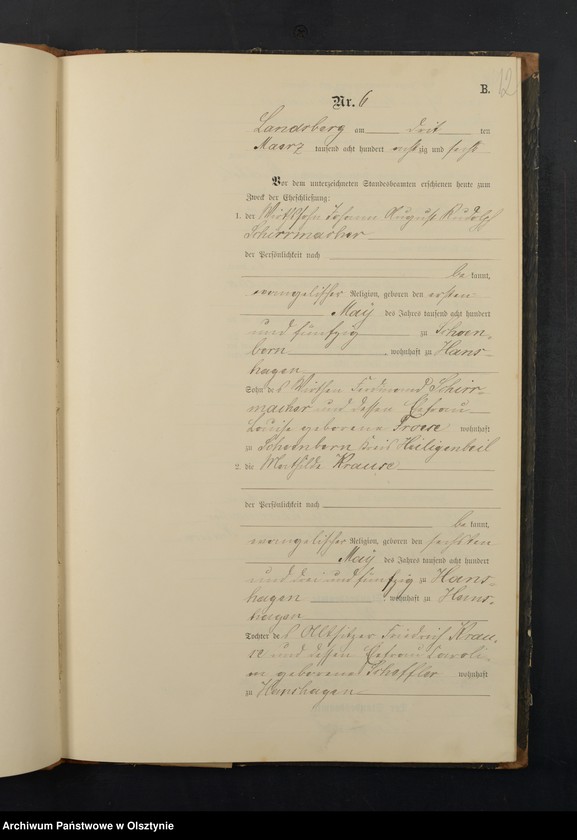 B.
12
Nr. 6
Landsberg am drit ten
Maerz tausend acht hundert acht zig und sechs
Vor dem unterzeichneten Standesbeamten erschienen heute zum
Zweck der Eheschließung:
1. der Wirthssohn Johann August Rudolph
Schirrmacher
der Persönlichkeit nach
be kannt,
evangelischer Religion, geboren den ersten
May des Jahres tausend acht hundert
und fünfzig zu Schoen-
born, wohnhaft zu Hans-
hagen
Sohn des Wirthen Ferdinand Schirr-
macher und dessen Ehefrau
Louise geborene wohnhaft
zu Schoenborn Kreis Heiligenbeil
2. die Mathilde Krause
der Persönlichkeit nach
be kannt,
evangelischer Religion, geboren den sechsten
May des Jahres tausend acht hundert
und drei und fünfzig zu Hans-
hagen, wohnhaft zu Hans-
hagen
Tochter des Altsitzer Friedrich Krau-
se und dessen Ehefrau Caroli-
ne geborene Scheffler wohnhaft
zu Hanshagen
Archiwum Państwowe w Olsztynie